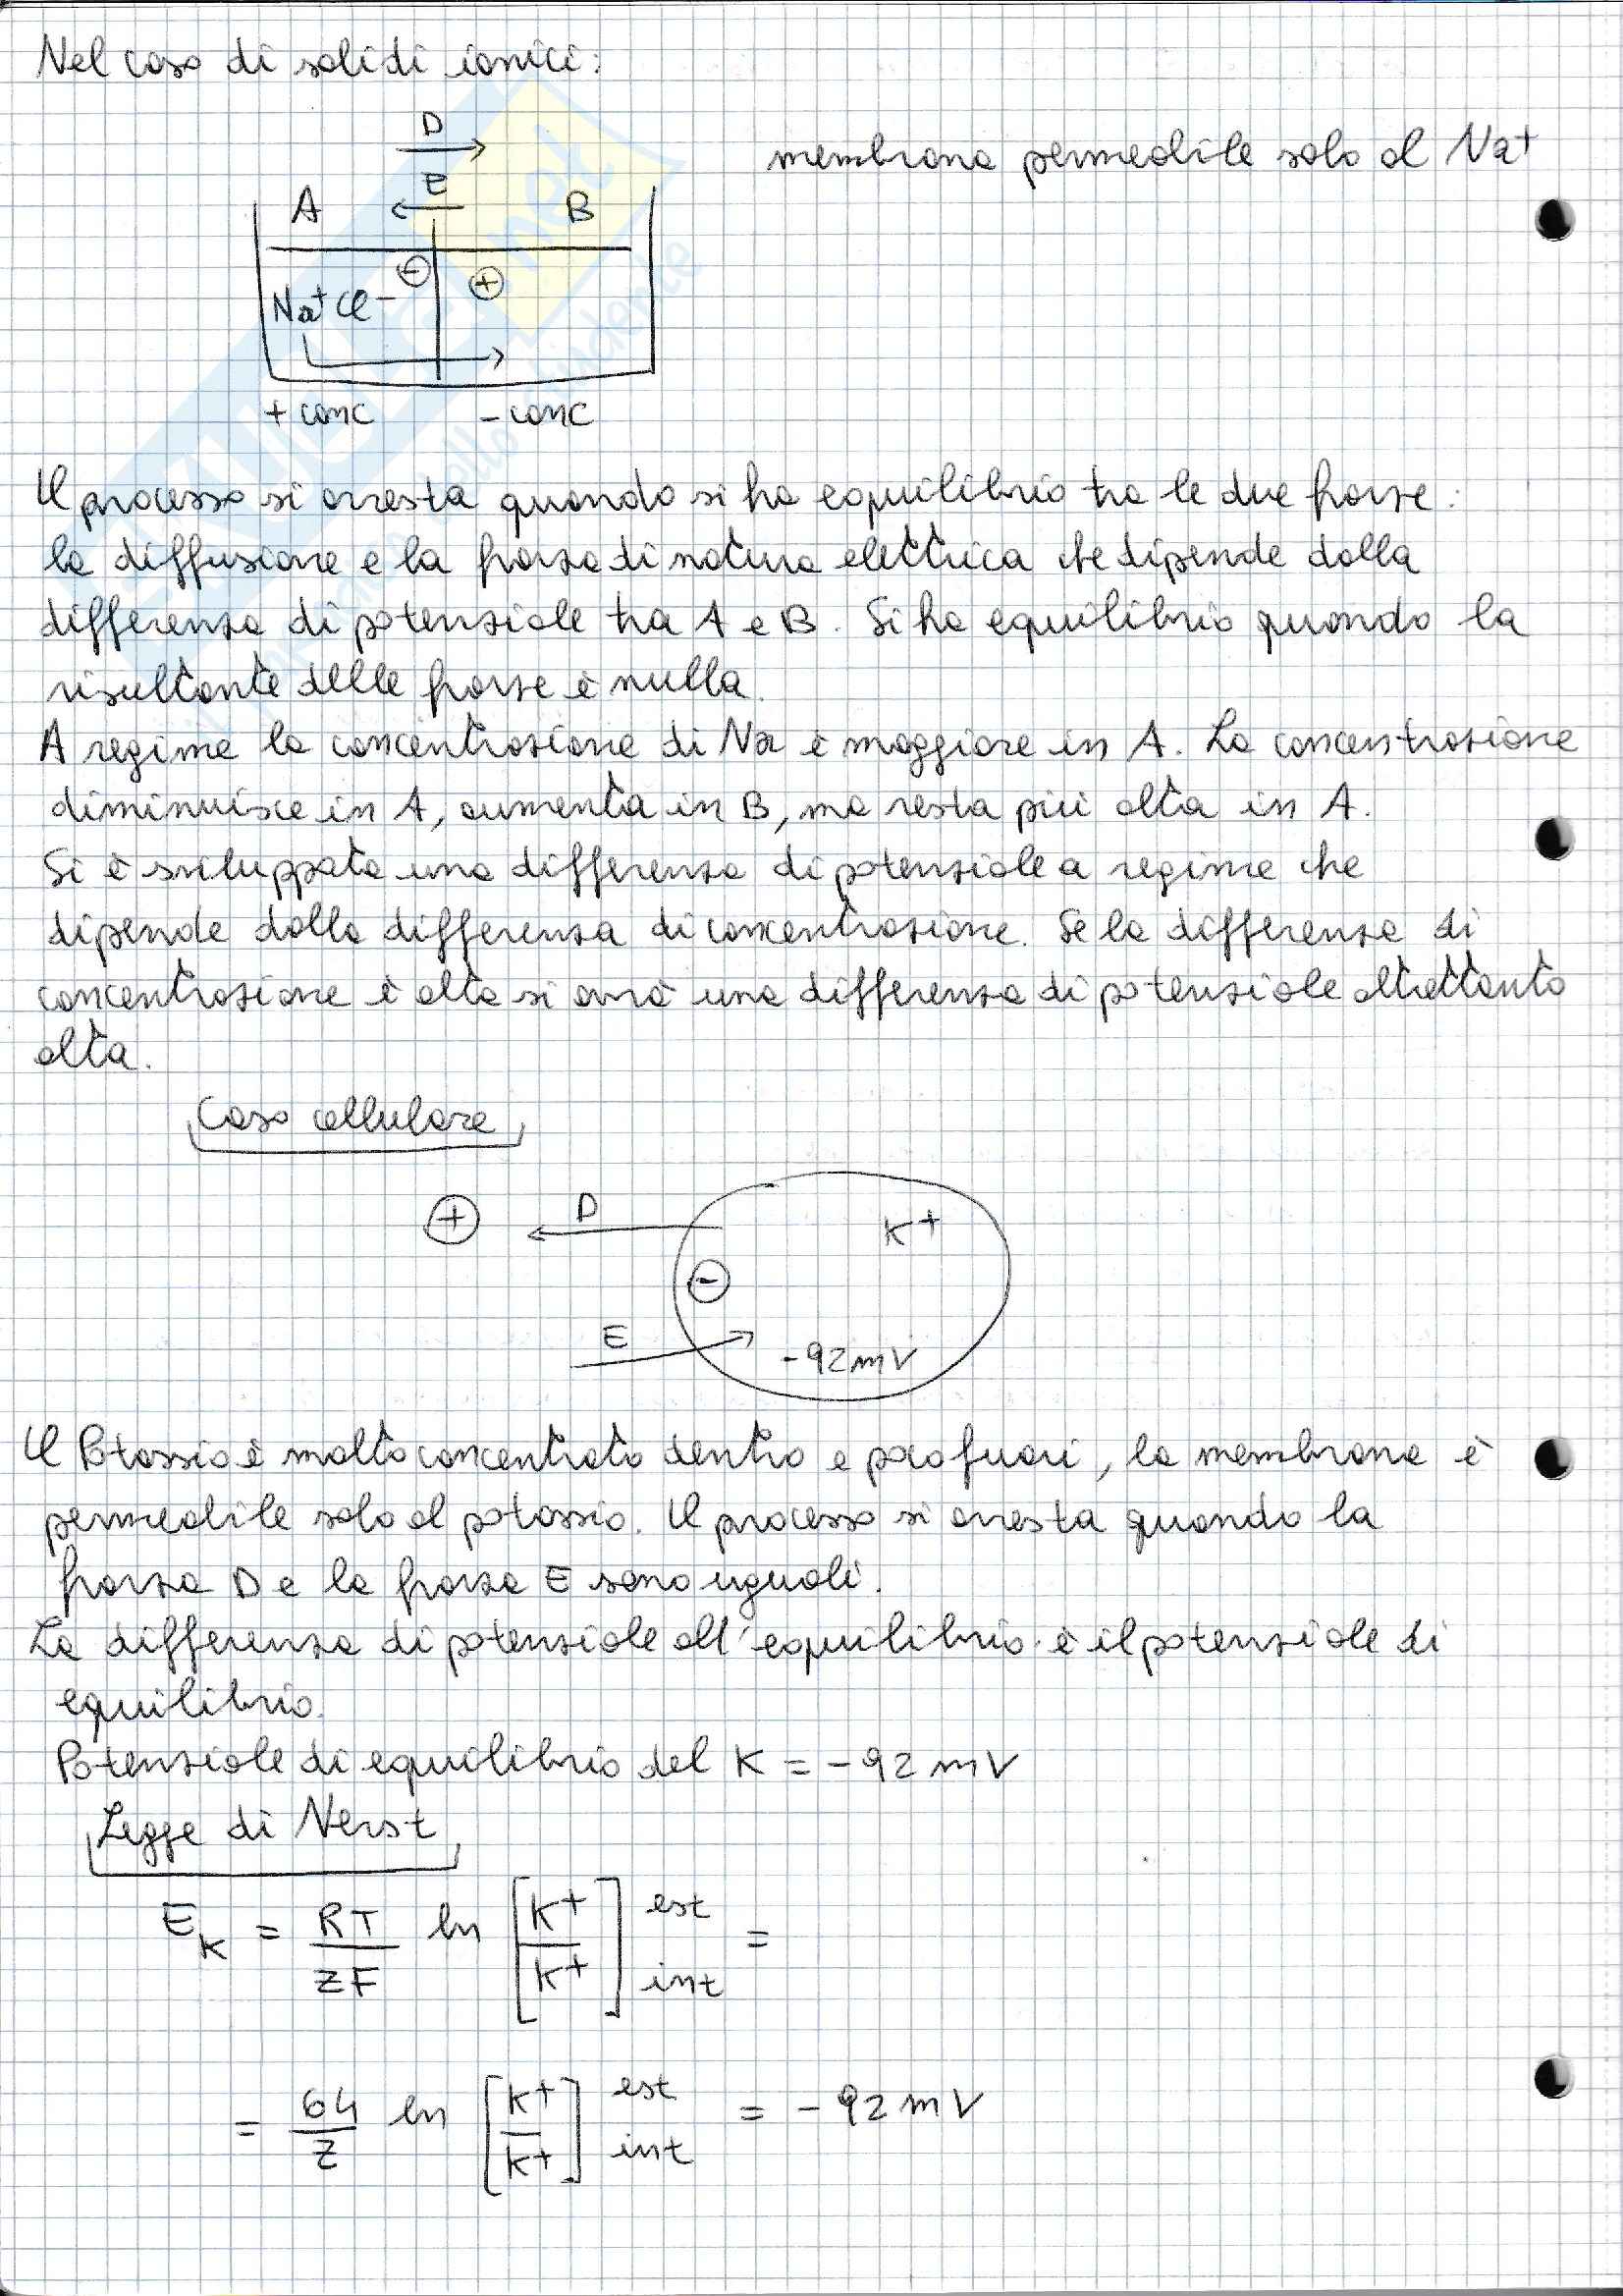 Nel caso di solidi ionici:
D
membrana permeabile solo al Na+
E
A B
- +
Na+Cl-
+ conc - conc
Il processo si arresta quando si ha equilibrio tra le due forze:
la diffusione e la forza di natura elettrica che dipende dalla
differenza di potenziale tra A e B. Si ha equilibrio quando la
risultante delle forze è nulla.
A regime la concentrazione di Na è maggiore in A. La concentrazione
diminuisce in A, aumenta in B, ma resta più alta in A.
Si è sviluppata una differenza di potenziale a regime che
dipende dalla differenza di concentrazione. Se la differenza di
concentrazione è alta si avrà una differenza di potenziale altrettanto
alta.
Caso cellulare
+ D K+
-
E
-92mV
Il Potassio è molto concentrato dentro e poco fuori, la membrana è
permeabile solo al potassio. Il processo si arresta quando la
forza D e la forza E sono uguali.
La differenza di potenziale all'equilibrio è il potenziale di
equilibrio.
Potenziale di equilibrio del K = -92 mV
Legge di Nerst
E_K = RT/ZF ln [K+/K+] est/int =
= 64/Z ln [K+/K+] est/int = -92 mV